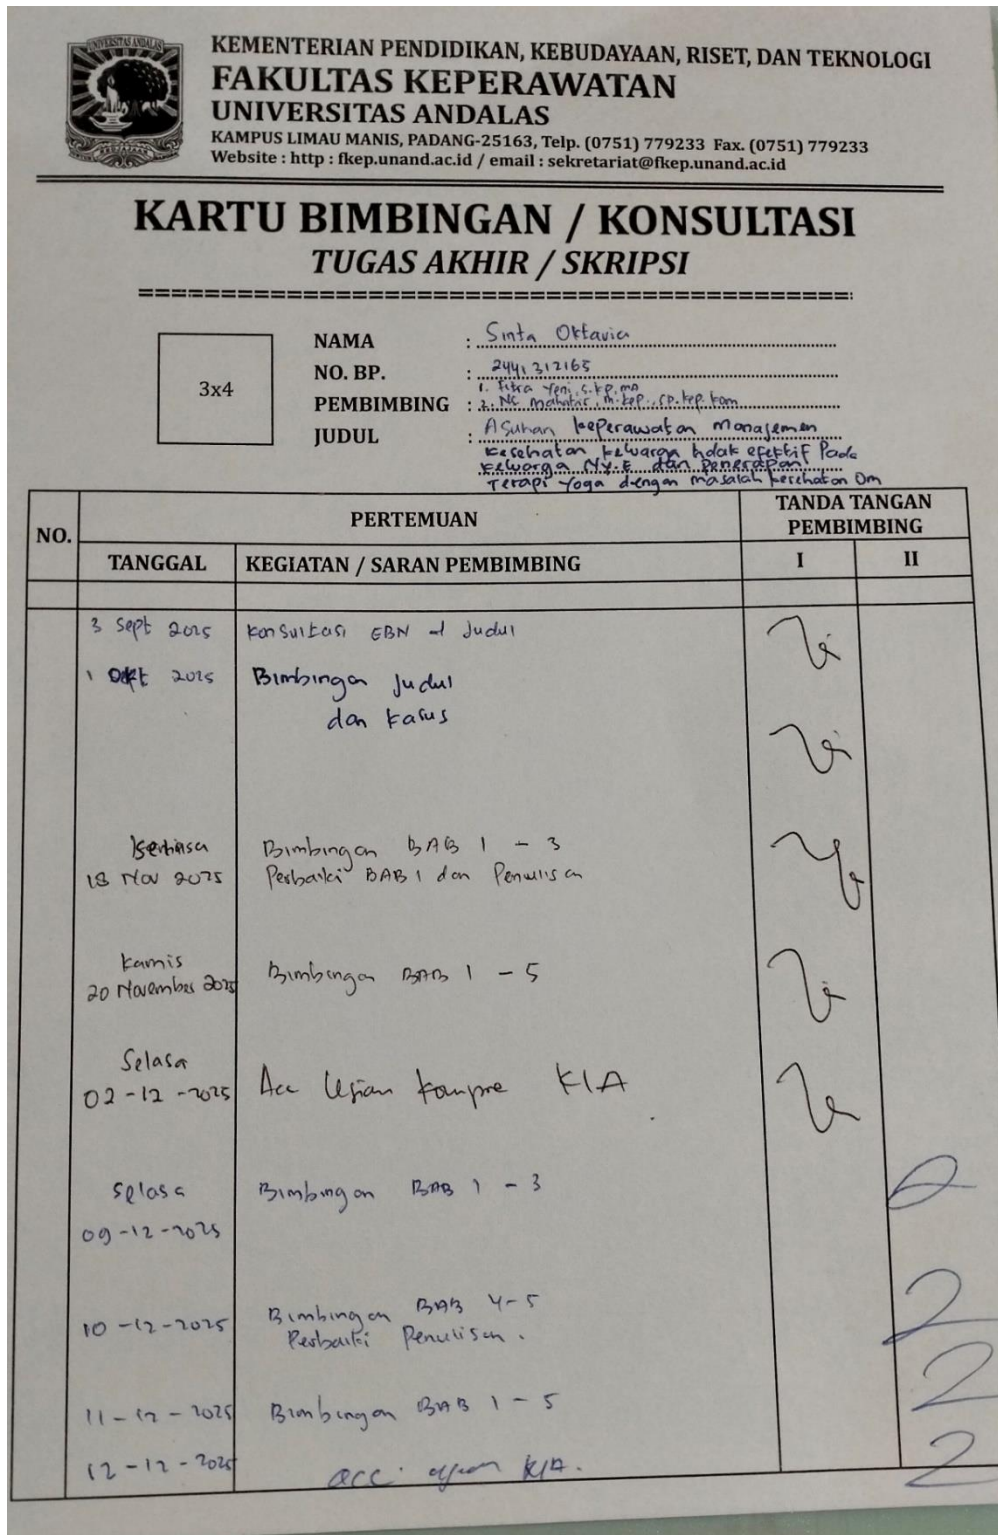 UNIVERSITAS ANDALAS
KEMENTERIAN PENDIDIKAN, KEBUDAYAAN, RISET, DAN TEKNOLOGI
FAKULTAS KEPERAWATAN
UNIVERSITAS ANDALAS
KAMPUS LIMAU MANIS, PADANG-25163, Telp. (0751) 779233 Fax. (0751) 779233
Website : http : fkep.unand.ac.id / email : sekretariat@fkep.unand.ac.id
KARTU BIMBINGAN / KONSULTASI
TUGAS AKHIR / SKRIPSI
3x4
NAMA : Sinta Oktavia
NO. BP. : 2441312165
PEMBIMBING : 1. Fitra Yeni, S.kp, MA
2. Ns. Mahathir, M.kep., sp.kep.kom
JUDUL : Asuhan keperawatan Manajemen
kesehatan keluarga tidak efektif Pada
keluarga Ny.E dan Penerapan
Terapi Yoga dengan masalah kesehatan Dm
NO. PERTEMUAN TANDA TANGAN PEMBIMBING
TANGGAL KEGIATAN / SARAN PEMBIMBING I II
3 Sept 2025 Konsultasi EBN Judul
1 Okt 2025 Bimbingan Judul
dan kasus
18 Nov 2025 Bimbingan BAB 1 - 3
Perbaiki BAB 1 dan Penulisan
Kamis
20 November 2025 Bimbingan BAB 1 - 5
Selasa
02-12-2025 Acc Ujian kompre KIA
Selasa
09-12-2025 Bimbingan BAB 1 - 3
10-12-2025 Bimbingan BAB 4-5
Perbaiki Penulisan.
11-12-2025 Bimbingan BAB 1 - 5
12-12-2025 acc. ujian KIA.